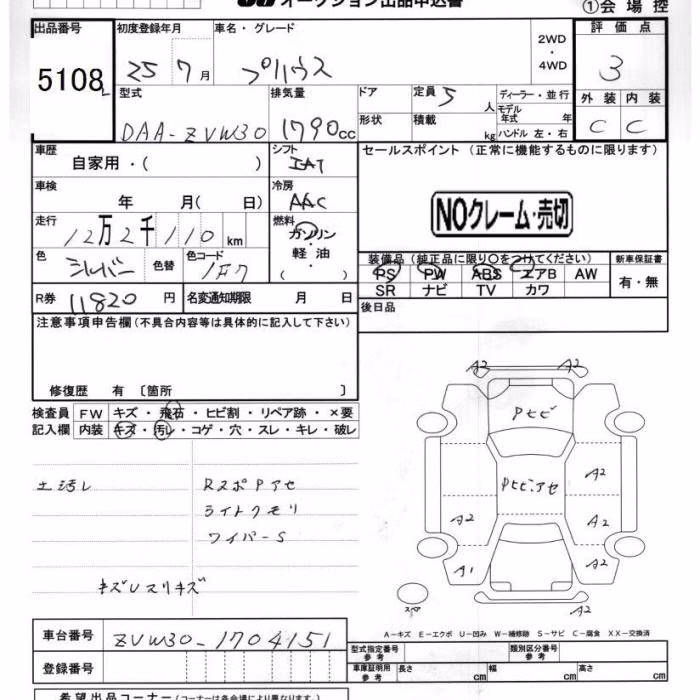 オークション出品申込書
①会場控
出品番号 初度登録年月 車名・グレード 評価点
5108 25 7月 プリウス 2WD・4WD 3
型式 排気量 ドア 定員 5人 ディーラー・並行
モデル年式 年
外装 内装
DAA-ZVW30 1790cc 形状 積載 kg ハンドル 左・右 C C
車歴 シフト セールスポイント (正常に機能するものに限ります)
自家用・( ) IAT
車検 冷房
年 月( 日) AAC
NOクレーム・売切
走行 燃料
12万2千110km ガソリン・軽油・( )
色 シルバー 色替 色コード 1F7
装備品(純正品に限り○をつけてください) 新車保証書
PS PW ABS エアB AW 有・無
SR ナビ TV カワ
R券 11820円 名変通知期限 月 日 後日品
注意事項申告欄(不具合内容等は具体的に記入して下さい)
修復歴 有 〔箇所 〕
検査員記入欄 FW キズ・飛石・ヒビ割・リペア跡・×要
内装 キズ・汚レ・コゲ・穴・スレ・キレ・破レ
RスポPアセ
ライトクモリ
ワイパーS
A2 A2
Pヒビ
Pヒビ.アセ A2
A2 A2
A1 A2
A2
スペア
A-キズ E-エクボ U-凹み W-補修跡 S-サビ C-腐食 XX-交換済
車台番号 ZVW30-1704151
型式指定番号 参考 類別区分番号 参考
登録番号
車庫証明用 参考 長さ cm 幅 cm 高さ cm
希望出品コーナー(コーナーは各会場により異なります。)